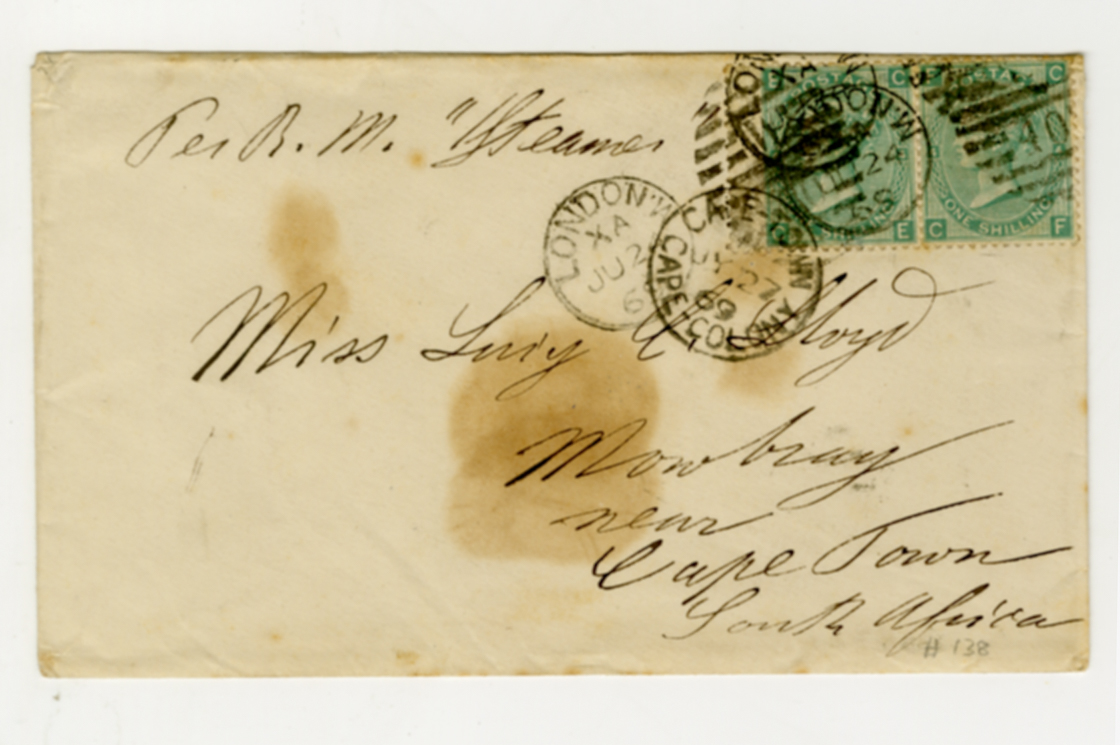 Per R. M. "Steamer
Miss Lucy C. Lloyd
Mowbray
near
Cape Town
South Africa
# 138
LONDON W
XA
JU 2
6
CAPE TOWN
27
69
CAPE COLONY
LONDON W
24
POSTAGE
C
ONE SHILLING
C E
C
ONE SHILLING
C F
10